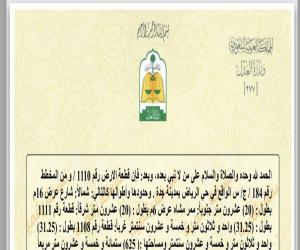 بسم الله الرحمن الرحيم
المملكة العربية السعودية
وزارة العدل
[٢٧٧]
وزارة العدل
الحمد لله وحده والصلاة والسلام على من لا نبي بعده، وبعد: فإن قطعة الارض رقم 1110 / و من المخطط
رقم 184 / ج/ س الواقع في حي الرياض بمدينة جدة . وحدودها وأطوالها كالتالي: شمالاً: شارع عرض 16م
بطول : (20) عشرون متر جنوباً: ممر مشاه عرض 6م بطول : (20) عشرون متر شرقاً: قطعة رقم 1111
بطول : (31.25) واحد و ثلاثون متر و خمسة و عشرون سنتمتر غرباً: قطعة رقم 1108 بطول : (31.25)
واحد و ثلاثون متر و خمسة و عشرون سنتمتر ومساحتها : (625) ستمائة و خمسة و عشرون متر مربعا